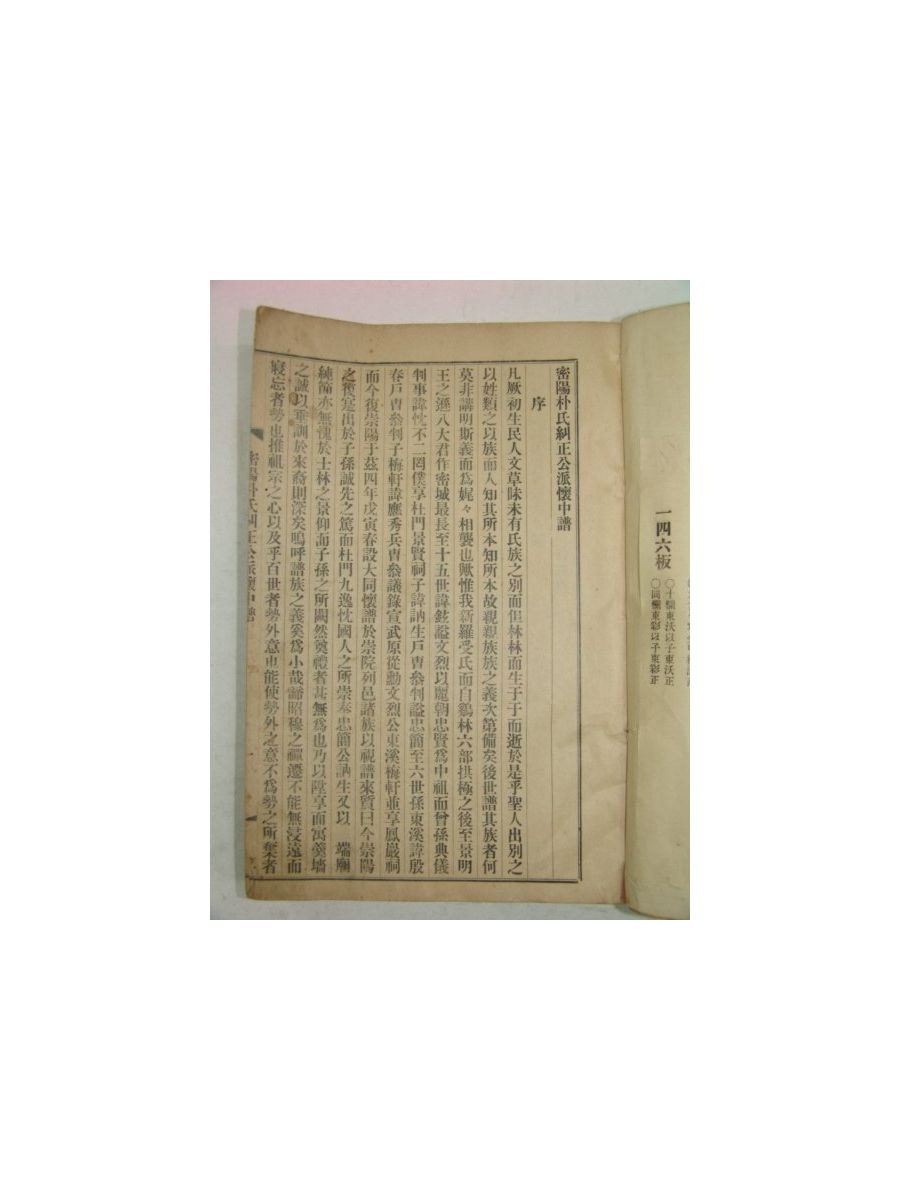 一四六板
〇十欄東沃以子東沃正
〇同欄東彩以子東彩正
密陽朴氏糾正公派懷中譜
序
凡厥初生民人文草昧未有氏族之別而但林林而生于于而逝於是乎聖人出別之
以姓類之以族而人知其所本知所本故親親族族之義次第備矣後世譜其族者何
莫非講明斯義而為娓々相襲也歟惟我新羅受氏而自鷄林六部拱極之後至景明
王之遜八大君作密城最長至十五世諱鉉謚文烈以麗朝忠賢為中祖而曾孫典儀
判事諱忱不二罔僕享杜門景賢祠子諱訥生戶曺叅判謚忠簡至六世孫東溪諱殷
春戶曺叅判子梅軒諱應秀兵曺叅議錄宣武原從勳文烈公東溪梅軒並享鳳巖祠
而今復崇陽于玆四年戊寅春設大同懷譜於崇院列邑諸族以視譜來質曰今崇陽
之復寔出於子孫誠先之篤而杜門九逸忱國人之所崇奉忠簡公訥生又以　端廟
練節亦無愧於士林之景仰而子孫之所闕然奠禮者甚無為也乃以陞享而寓羹墻
之誠以垂訓於來裔則深矣嗚呼譜族之義奚為小哉昭穆之禪遷不能無浸遠而
寢忘者勢也推祖宗之心以及乎百世者勢外意也能使勢外之意不為勢之所棄者
密陽朴氏糾正公派懷中譜